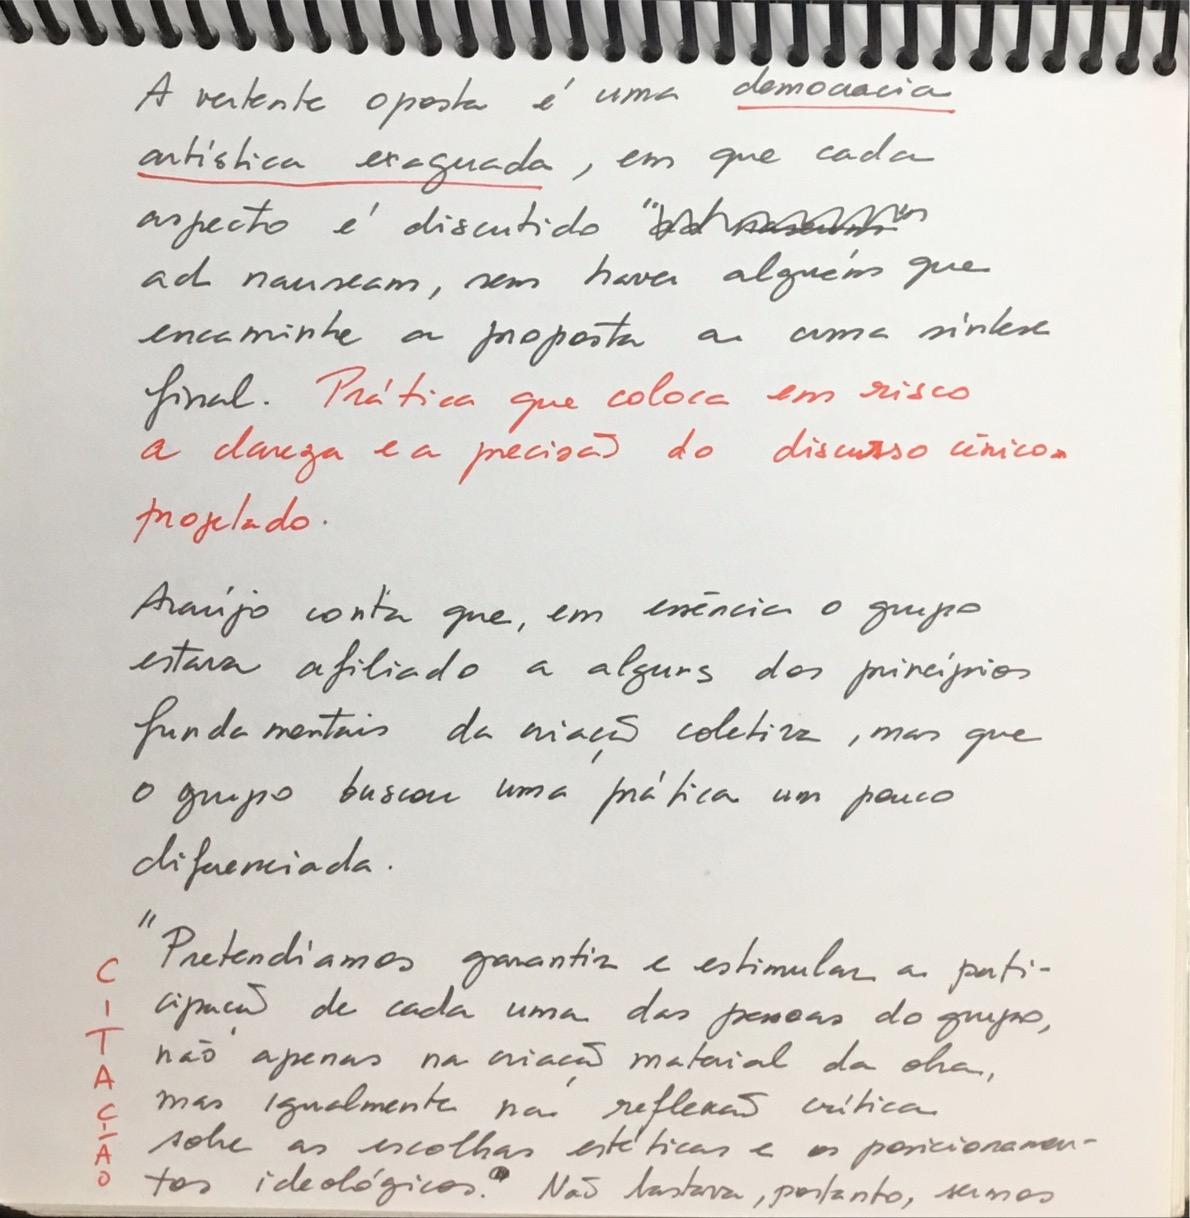 A vertente oposta é uma democracia
artística exagerada, em que cada
aspecto é discutido "
ad nauseam, sem haver alguém que
encaminhe a proposta a uma síntese
final. Prática que coloca em risco
a clareza e a precisão do discurso cênico
projetado.
Araújo conta que, em essência o grupo
estava afiliado a alguns dos princípios
fundamentais da criação coletiva, mas que
o grupo buscou uma prática um pouco
diferenciada.
"Pretendíamos garantir e estimular a parti-
cipação de cada uma das pessoas do grupo,
não apenas na criação material da obra,
mas igualmente na reflexão crítica
sobre as escolhas estéticas e os posicionamen-
tos ideológicos." Não bastava, portanto, sermos
CITAÇÃO